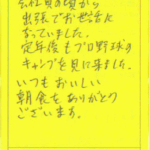 会社員の頃から
出張でお世話に
なっていました。
定年後もプロ野球の
キャンプを見に来ました。
いつもおいしい
朝食をありがとう
ございます。